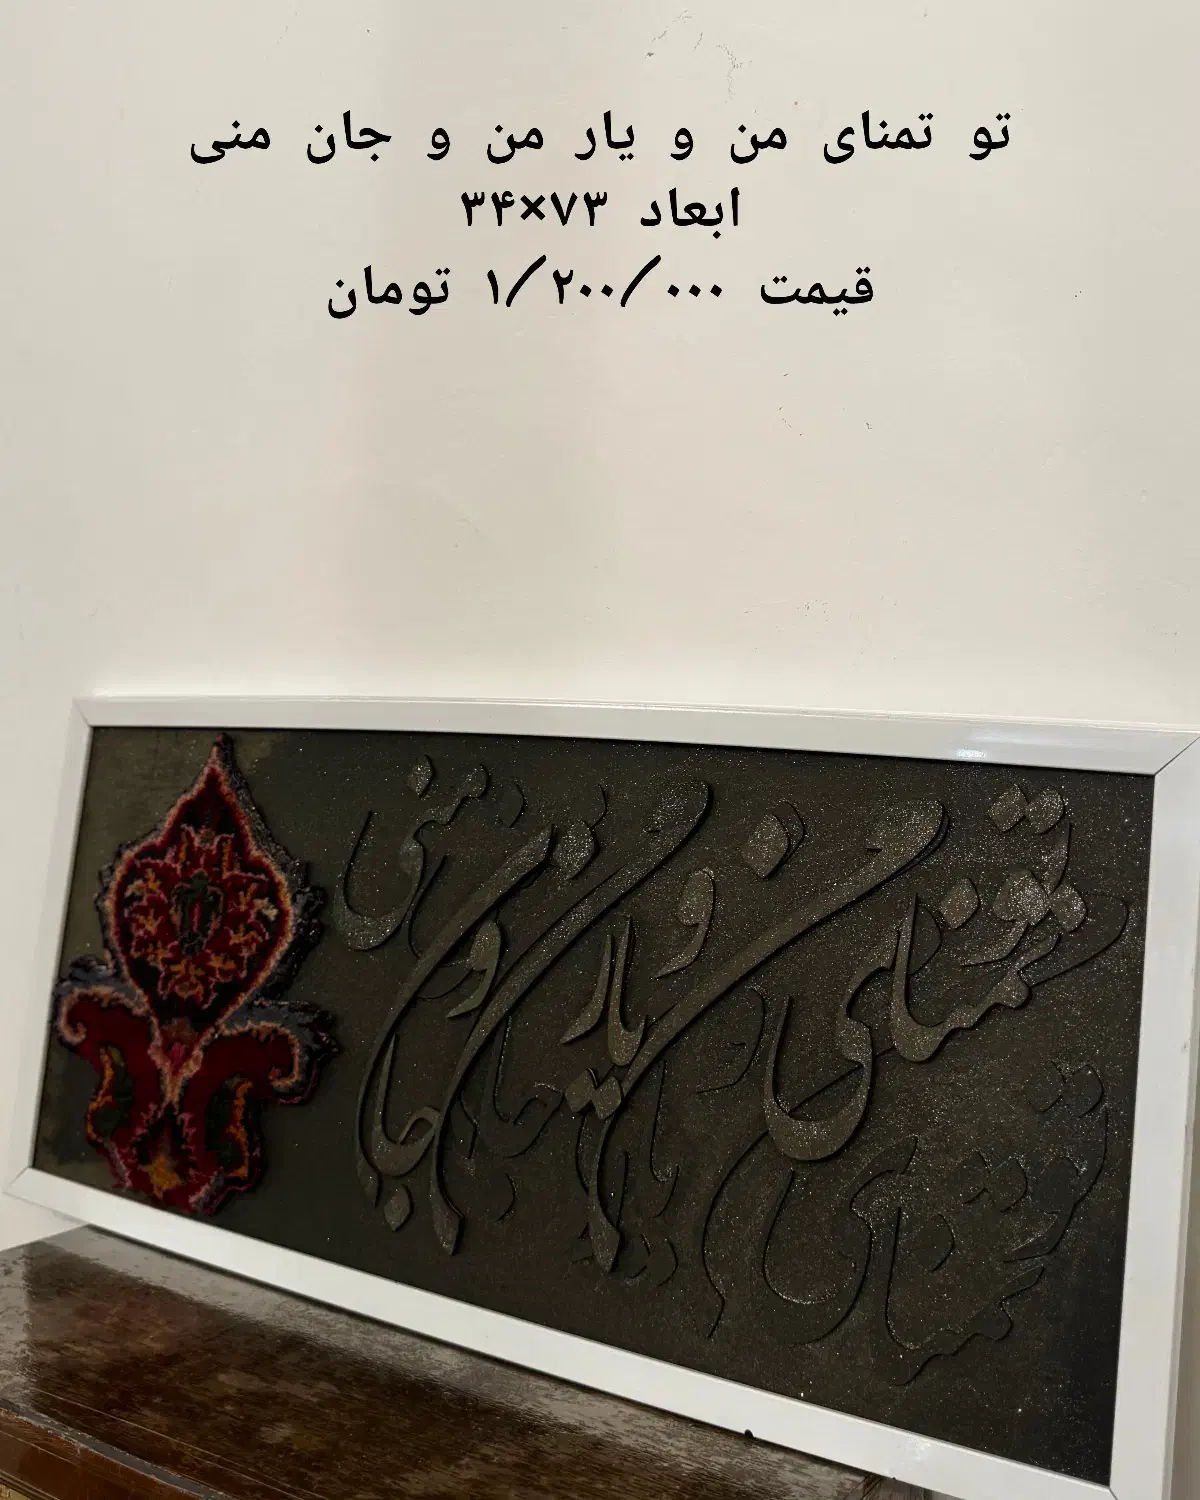 تو تمنای من و یار من و جان منی
ابعاد ۷۳×۳۴
قیمت ۱/۲۰۰/۰۰۰ تومان
تو تمنای من و یار من و جان منی